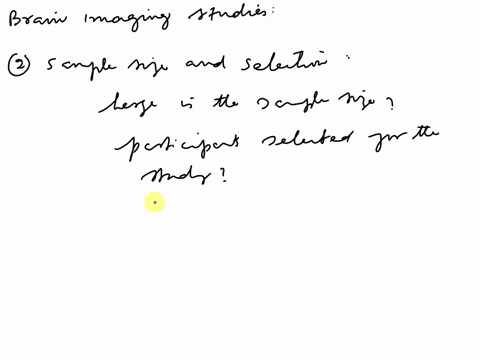 Brain imaging studies:
② sample size and selection:
large is the sample size?
participants selected for the
study?